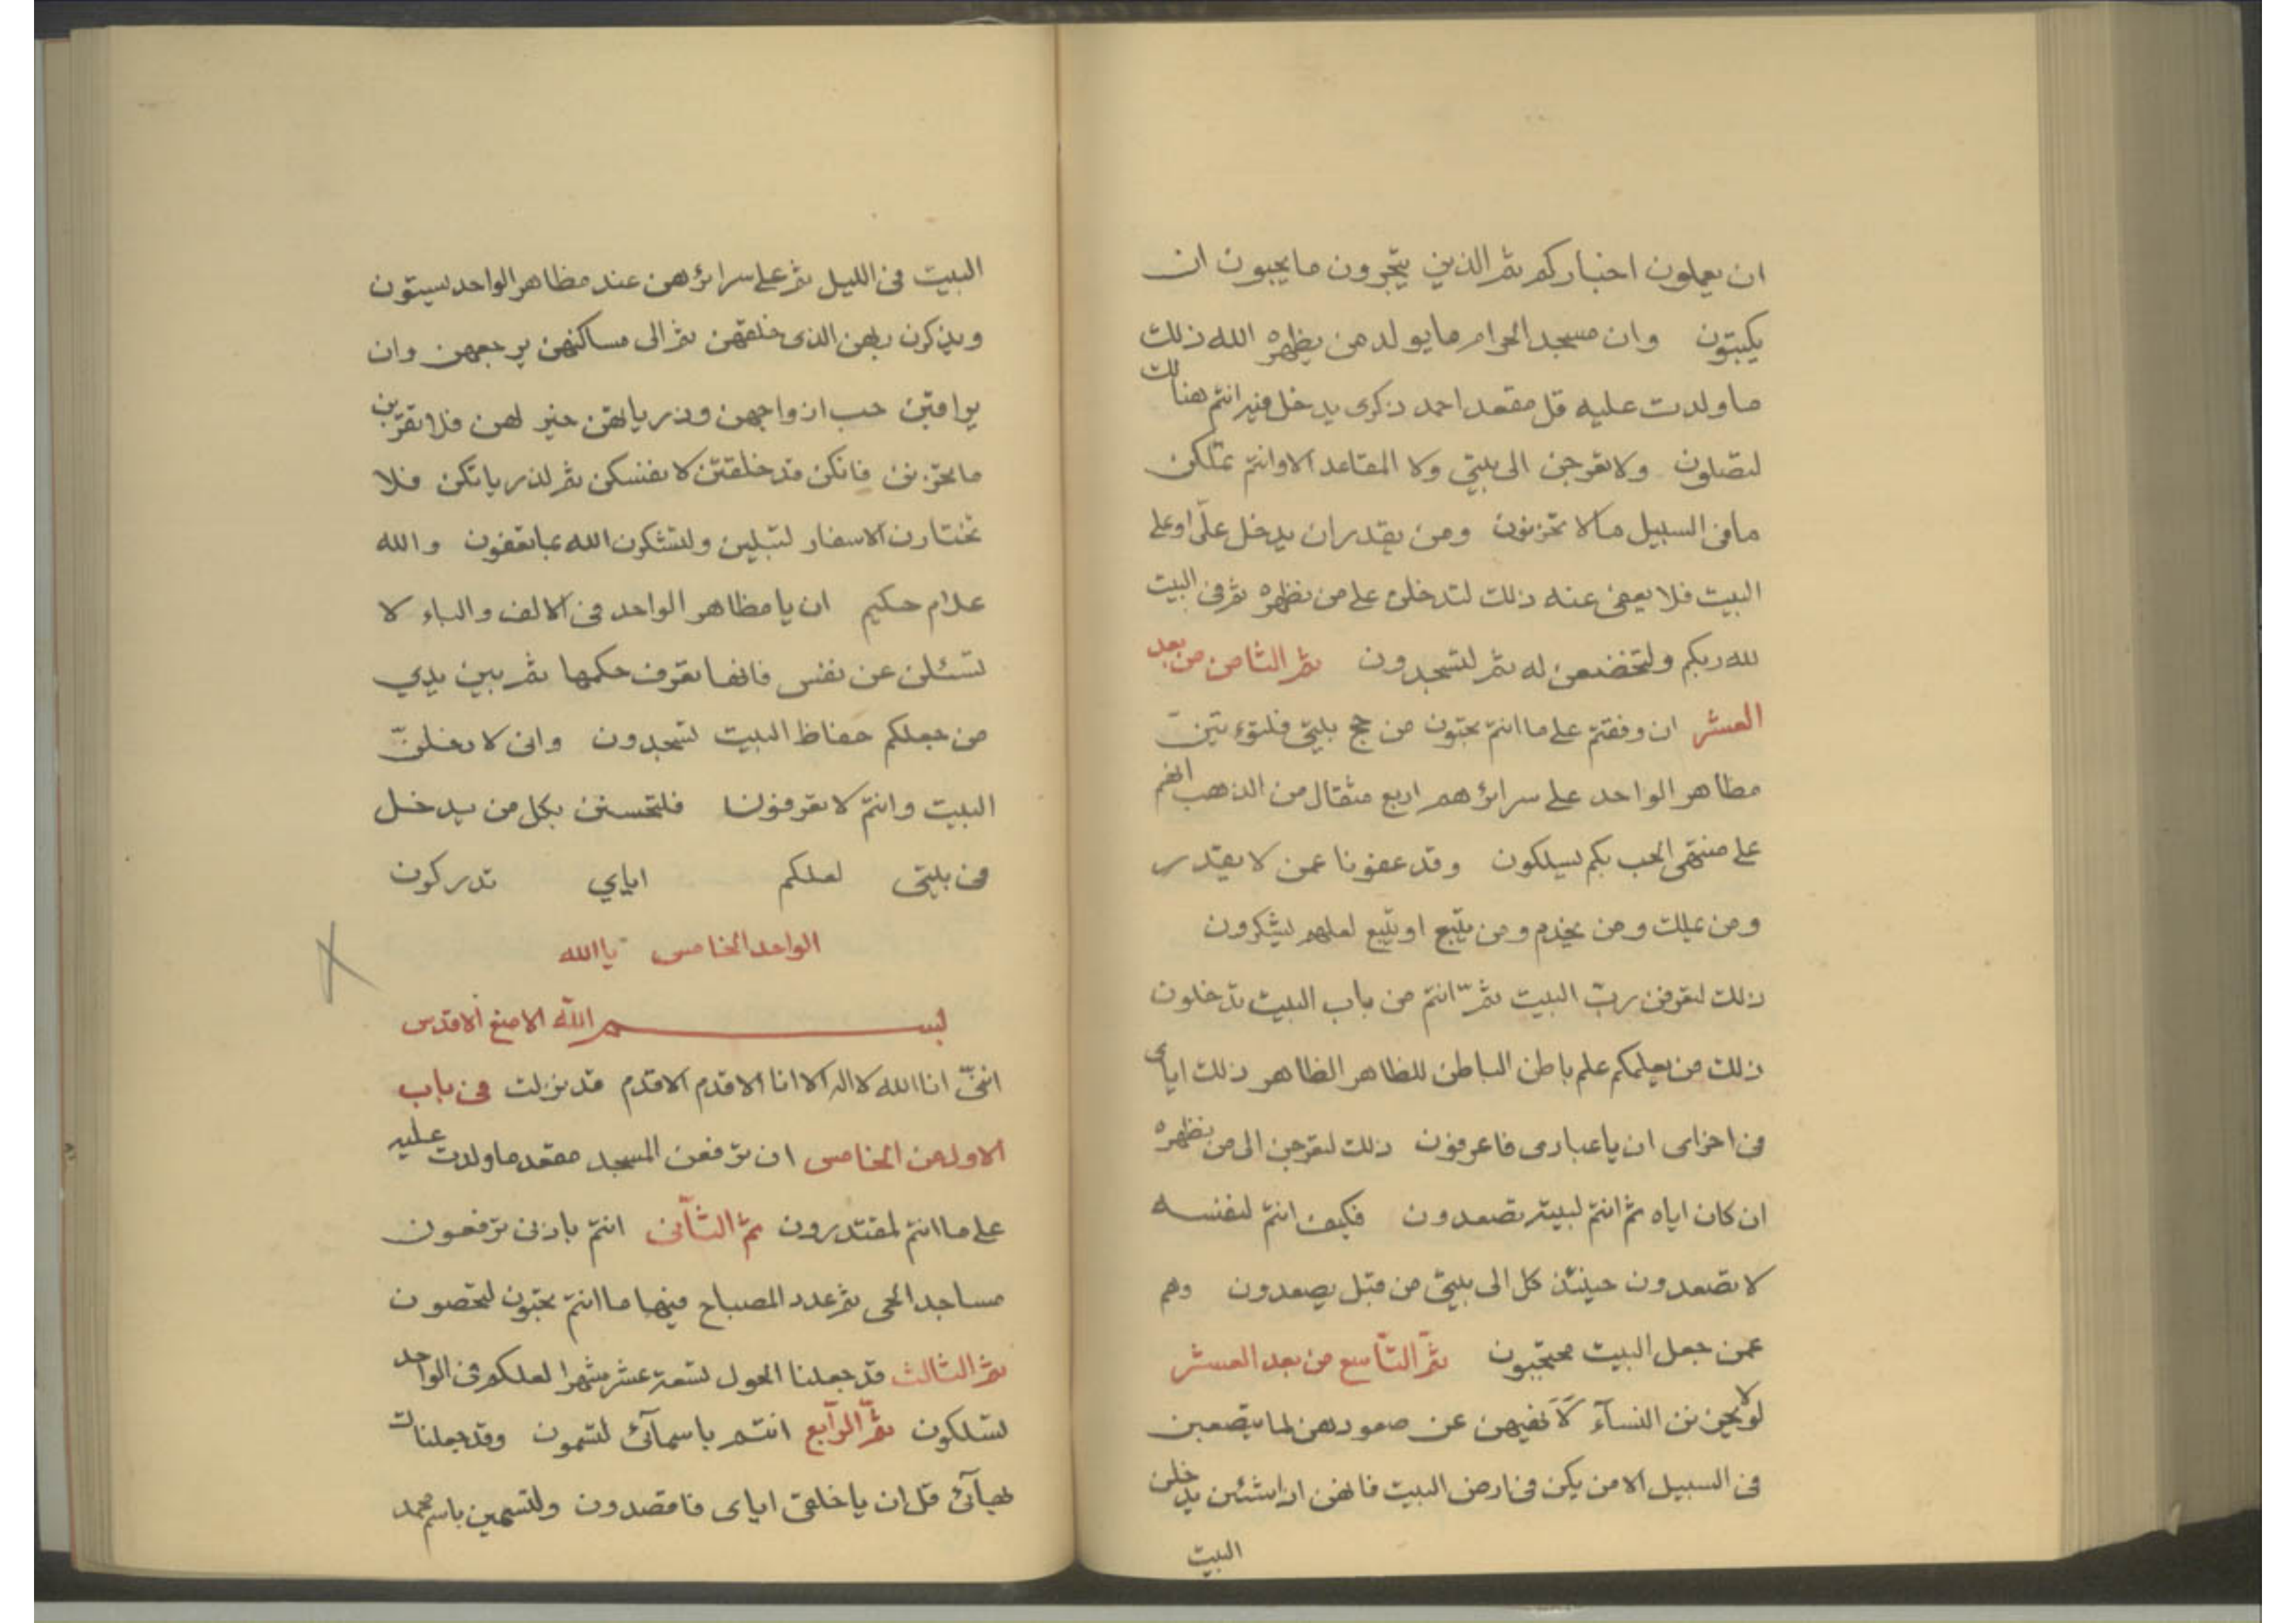 ان يعملون اخباركم ثم الذين يتجرون ما يحبون ان
يكتبون وان مسجد الحرام ما يولد من يظهره الله ذلك
ما ولدت عليه قل مقعد احمد ذكرى يدخل فيه انتم هنالك
لتصلون ولا تعرجن الى بيتي ولا المقاعد الا وانتم تملكن
ما في السبيل ما لا تحزنون ومن يقدر ان يدخل علي او على
البيت فلا يعفى عنه ذلك لتدخلن على من نظهره ثم في البيت
لله ربكم ولتخضعن له ثم لتسجدون ثم الثامن من بعد
العشر ان وفقتم على ما انتم تحبون من حج بيتي فلتؤتين
مظاهر الواحد على سرائرهم اربع مثقال من الذهب انهم
على منتهى الحب بكم ليسلكون وقد عفونا عمن لا يقدر
ومن يملك ومن يخدم ومن يتبع او يتبع لعلهم ليشكرون
ذلك لتعرفن رب البيت ثم انتم من باب البيت تدخلون
ذلك من يعلمكم علم باطن الباطن للظاهر الظاهر ذلك اياى
في اخراى ان يا عبادى فاعرفون ذلك لتعرجن الى من نظهره
ان كان اياه ثم انتم لبيته تصعدون فكيف انتم لنفسه
لا تصعدون حينئذ كل الى بيتي من قبل يصعدون وهم
عمن جعل البيت محتجبون ثم التاسع من بعد العشر
ولا يحزنن النساء لا نفيهن عن صعودهن لما يتصعبن
في السبيل الا من يكن في ارض البيت فانهن ان اشئن يدخلن
البيت
البيت في الليل ثم على سرائرهن عند مظاهر الواحد ليستون
ويذكرن ربهن الذى خلقهن ثم الى مساكنهن يرجعهن وان
يراقبن حب ازواجهن وذرياتهن خير لهن فلا تقربن
ما تحزنن فانكن قد خلقتن لانفسكن ثم لذرياتكن فلا
تختارن الاسفار لتبلين ولتشكرن الله عما تعفون والله
علام حكيم ان يا مظاهر الواحد في الالف والباء لا
تسئلن عن نفس فانها تعرف حكمها ثم بين يدي
من جعلكم حفاظ البيت لتسجدون وانى لا دخلن
البيت وانتم لا تعرفونا فلتحسنن بكل من يدخل
في بيتى لعلكم اياي تدركون
الواحد الخامس يا الله
بسم الله الامنع الاقدس
انني انا الله لا اله الا انا الاقدم الاقدم قد نزلت في باب
الاول من الخامس ان ترفعن المسجد مقعد ما ولدت عليه
على ما انتم لمقتدرون ثم الثاني انتم باذنى ترفعون
مساجد الحى ثم عدد المصباح فيها ما انتم تحبون لتحصون
ثم الثالث قد جعلنا الحول تسعة عشر شهرا لعلكم في الواحد
لتسلكون ثم الرابع انتم باسمآئ لتسمون وقد جعلناك
بهآئى قل ان يا خلقى اياى فاقصدون ولتسمين باسم محمد